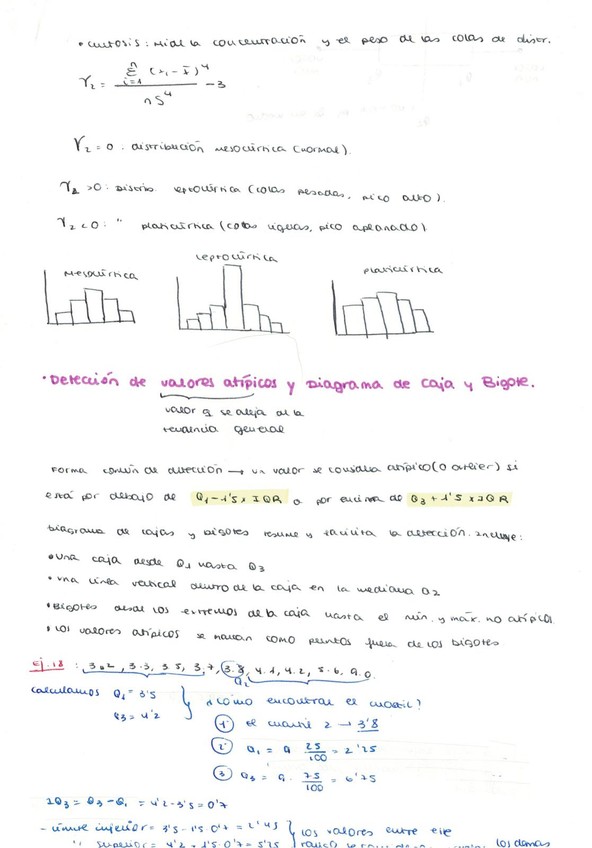 • Curtosis: Mide la concentración y el peso de las colas de distr.
γ₂ = Σ(i=1, n) (xᵢ - x̄)⁴ / nS⁴ - 3
γ₂ = 0 : distribución mesocúrtica (normal).
γ₂ > 0 : Distrib. leptocúrtica (colas pesadas, pico alto).
γ₂ < 0 : " platicúrtica (colas ligeras, pico aplanado)
Mesocúrtica Leptocúrtica Platicúrtica
• Detección de valores atípicos y Diagrama de Caja y Bigote.
valor q se aleja de la
tendencia general
Forma común de detección → un valor se considera atípico (o outlier) si
está por debajo de Q1 - 1'5 x IQR o por encima de Q3 + 1'5 x IQR
Diagrama de cajas y bigotes resume y facilita la detección. Incluye:
• Una caja desde Q1 hasta Q3
• Una línea vertical dentro de la caja en la mediana Q2
• Bigotes desde los extremos de la caja hasta el mín. y máx. no atípico.
• Los valores atípicos se marcan como puntos fuera de los bigotes
Ej. 18 : 3.2, 3.3, 3.5, 3,7, 3.8, 4.1, 4.2, 5.6, 9.0.
Q2
Calculamos Q1 = 3'5
Q3 = 4'2
¿Cómo encontrar el cuartil?
1 el cuartil 2 → 3'8
2 Q1 = 9 25/100 = 2'25
3 Q3 = 9 · 75/100 = 6'75
IQ3 = Q3 - Q1 = 4'2 - 3'5 = 0'7
- límite inferior = 3'5 - 1'5 · 0'7 = 2'45
" superior = 4'2 + 1'5 · 0'7 = 5'25
los valores entre ese
los demás